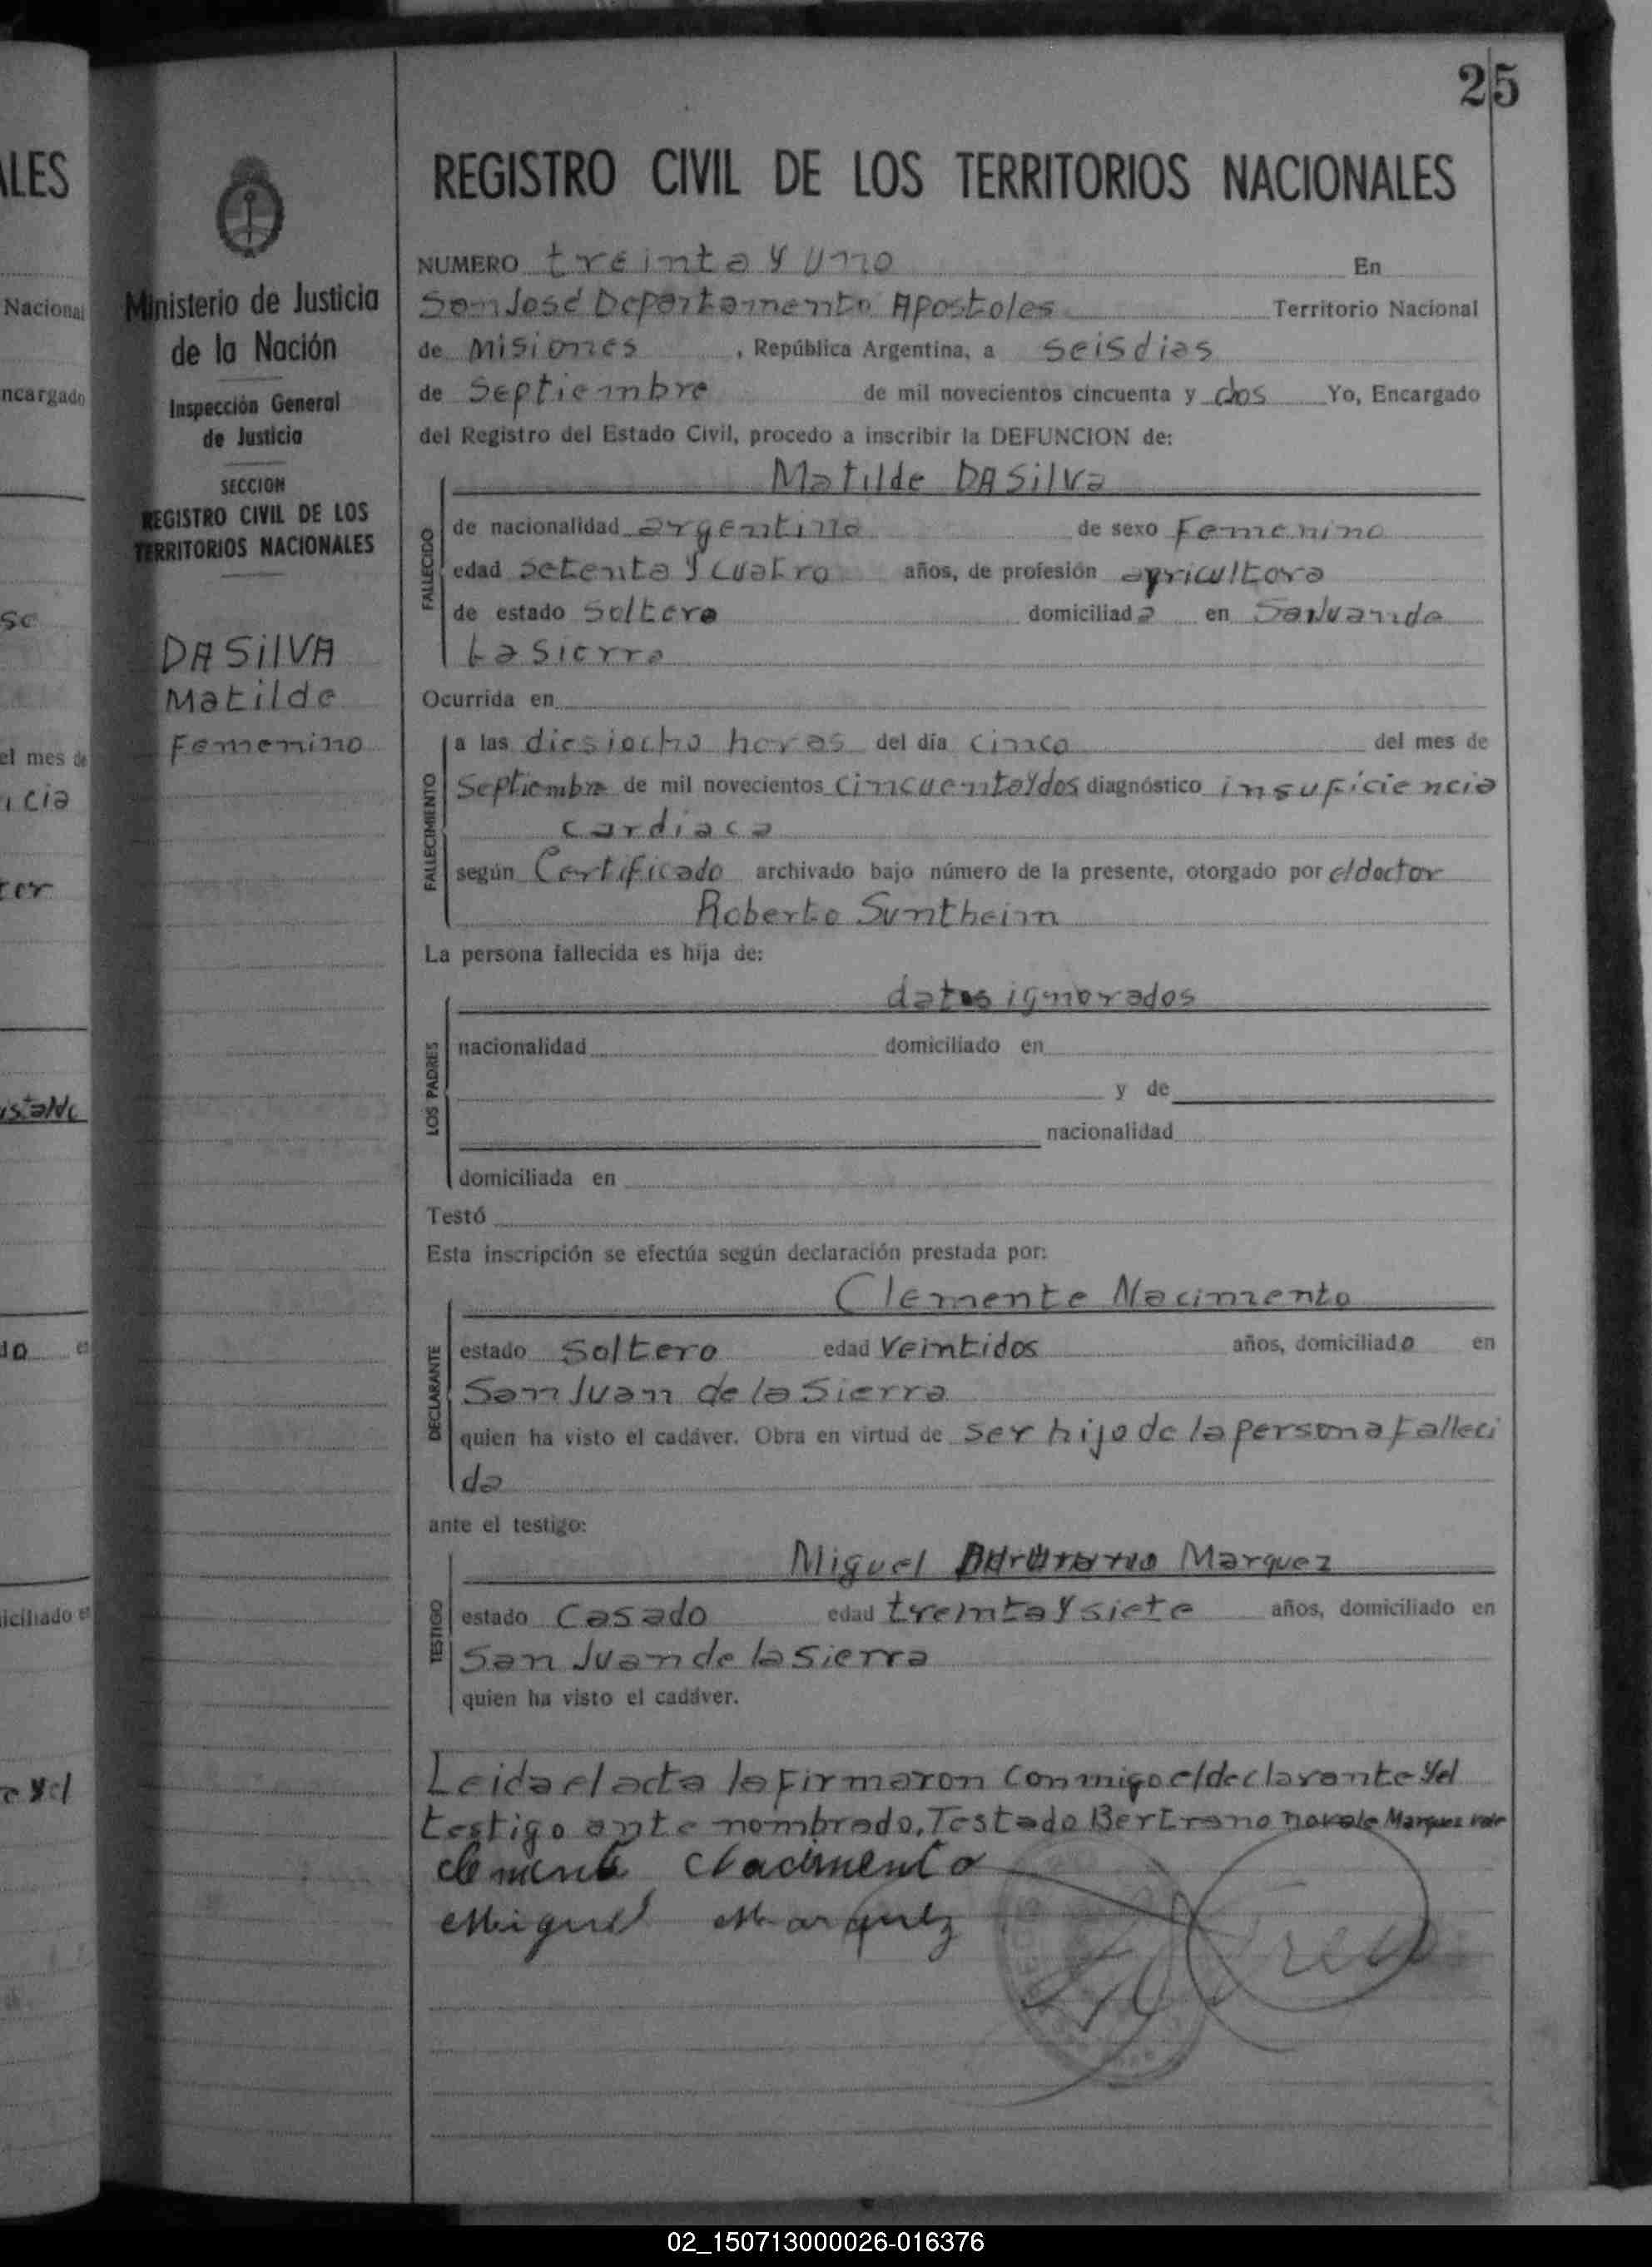 25
REGISTRO CIVIL DE LOS TERRITORIOS NACIONALES
ALES
Nacional
ncargado
sc
el mes de
icia
ter
do
iciliado e
e yel
Ministerio de Justicia
de la Nación
Inspección General
de Justicia
SECCION
REGISTRO CIVIL DE LOS
TERRITORIOS NACIONALES
DASilVA
Matilde
Femenino
NUMERO treinta y uno En
San José Departamento Apostoles Territorio Nacional
de Misiones , República Argentina, a seis dias
de Septiembre de mil novecientos cincuenta y dos Yo, Encargado
del Registro del Estado Civil, procedo a inscribir la DEFUNCION de:
Matilde DASilva
FALLECIDO
de nacionalidad argentina de sexo Femenino
edad setenta y cuatro años, de profesión agricultora
de estado Soltera domiciliada en SanJuande
LaSierra
Ocurrida en
FALLECIMIENTO
a las diesiocho horas del día cinco del mes de
Septiembre de mil novecientos cincuentaydos diagnóstico insuficiencia
cardiaca
según Certificado archivado bajo número de la presente, otorgado por el doctor
Roberto Suntheim
La persona fallecida es hija de:
LOS PADRES
datos ignorados
nacionalidad domiciliado en
y de
nacionalidad
domiciliada en
Testó
Esta inscripción se efectúa según declaración prestada por:
DECLARANTE
Clemente Nacimento
estado Soltero edad Veintidos años, domiciliado en
San Juan de la Sierra
quien ha visto el cadáver. Obra en virtud de ser hijo de la persona falleci
da
ante el testigo:
TESTIGO
Miguel Marquez
estado Casado edad treinta y siete años, domiciliado en
San Juan de la Sierra
quien ha visto el cadáver.
Leida el acta la firmaron conmigo el declarante y el
testigo ante nombrado, Testado Bertrano novale Marquez vale
Clemente Nacimento
Miguel Marquez
02_150713000026-016376